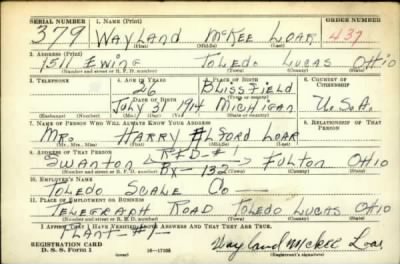 SERIAL NUMBER 1. NAME (Print) ORDER NUMBER
379 WAYLAND McKEE LOAR 437
(First) (Middle) (Last)
2. ADDRESS (Print)
1511 EWING TOLEDO LUCAS OHIO
(Number and street or R. F. D. number) (Town) (County) (State)
3. TELEPHONE 4. AGE IN YEARS 5. PLACE OF BIRTH 6. COUNTRY OF CITIZENSHIP
26 BLISSFIELD
DATE OF BIRTH (Town or county)
JULY 31 1914 MICHIGAN U.S.A.
(Exchange) (Number) (Mo.) (Day) (Yr.) (State or country)
7. NAME OF PERSON WHO WILL ALWAYS KNOW YOUR ADDRESS 8. RELATIONSHIP OF THAT PERSON
MR. HARRY ALFORD LOAR
(Mr., Mrs., Miss) (First) (Middle) (Last)
9. ADDRESS OF THAT PERSON R.F.D.
SWANTON BX-132 FULTON OHIO
(Number and street or R. F. D. number) (Town) (County) (State)
10. EMPLOYER'S NAME
TOLEDO SCALE CO
11. PLACE OF EMPLOYMENT OR BUSINESS
TELEGRAPH ROAD TOLEDO LUCAS OHIO
(Number and street or R. F. D. number) (Town) (County) (State)
I AFFIRM THAT I HAVE VERIFIED ABOVE ANSWERS AND THAT THEY ARE TRUE.
PLANT #1
REGISTRATION CARD
D. S. S. Form 1 (over) 16—17105 Wayland McKee Loar
(Registrant's signature)